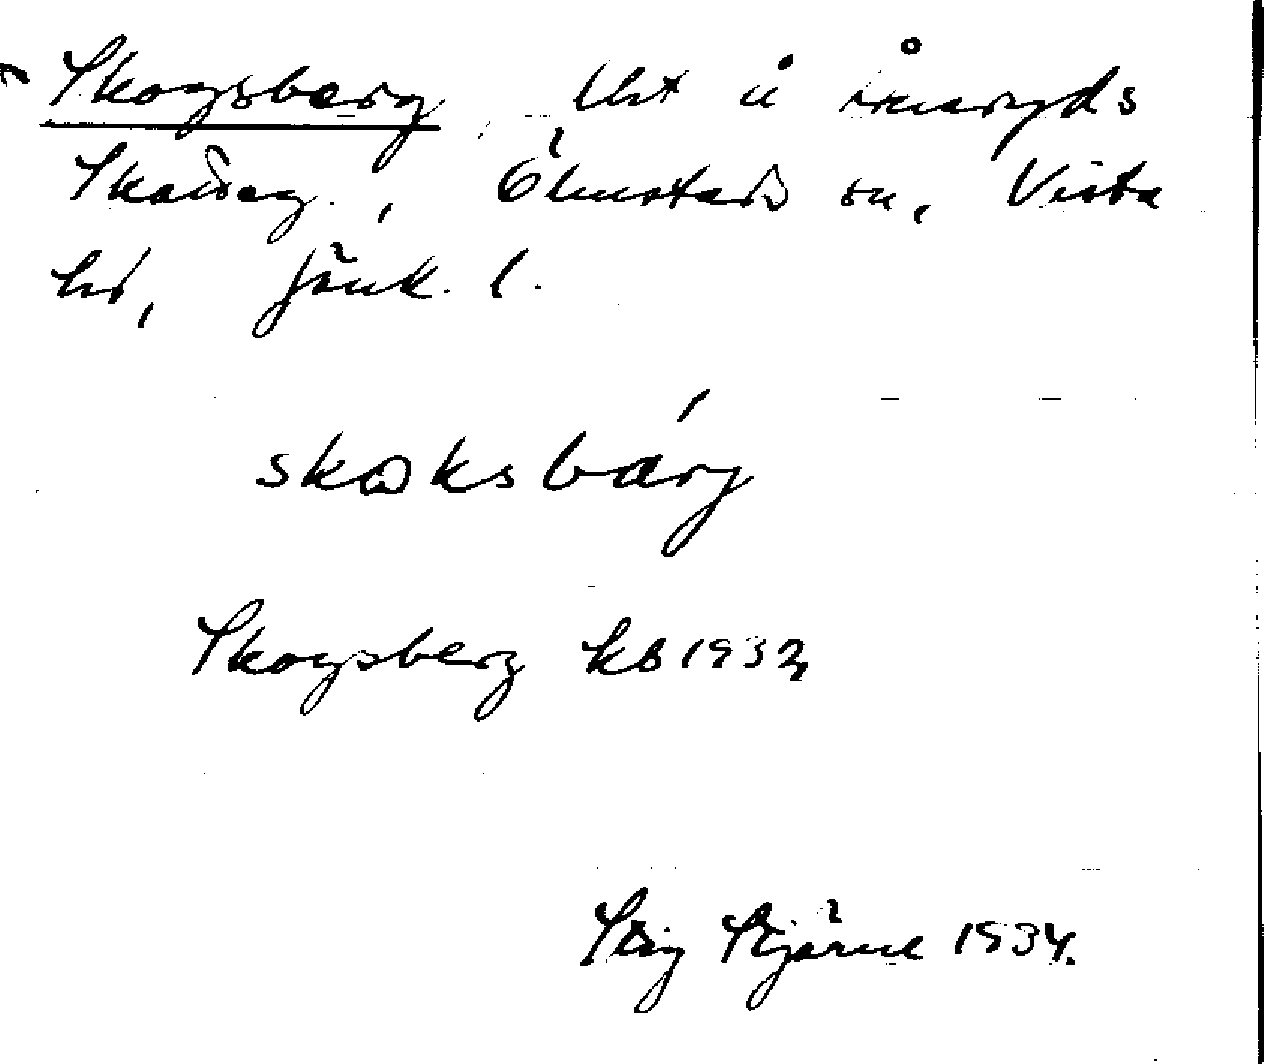 Skogsberg, lht å
Skattey., Ölmstads sn, Vista
hd, Jönk. l.
skɷksbárj
Skogsberg kb 1932
Stig Stjärne 1934.